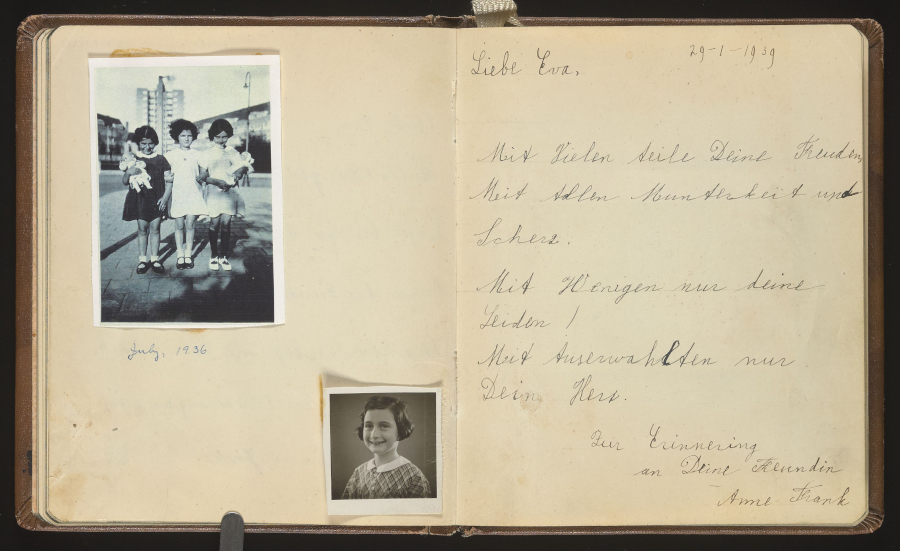 July, 1936
29-1-1939
Liebe Eva,
Mit Vielen teile Deine Freuden,
Mit Allen Munterkeit und
Scherz.
Mit Wenigen nur deine
Leiden !
Mit Auserwahlten nur
Dein Herz.
Zur Erinnering
an Deine Freundin
Anne Frank